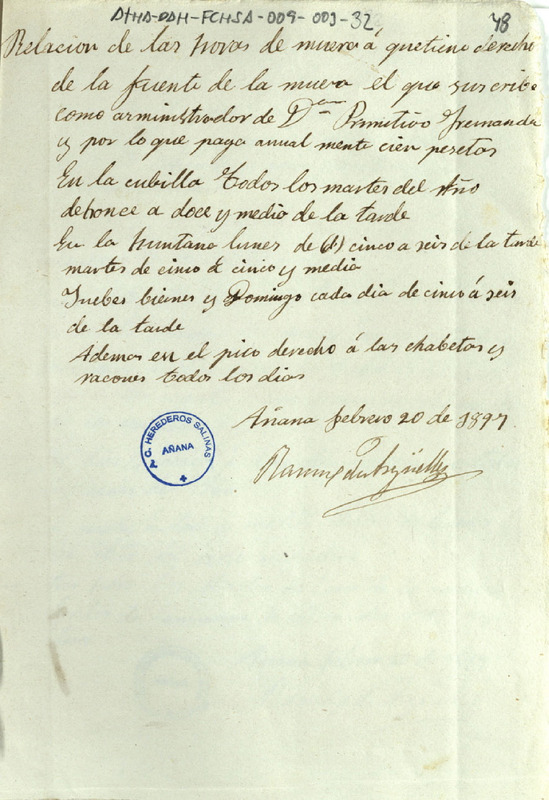 ATHA-DAH-FCHSA-009-003-32
78
Relacion de las horas de muera á que tiene derecho
de la fuente de la muera el que suscribe
como arministrador de D.ª Primitivo Fernande
y por lo que paga anual mente cien pesetas
En la cubilla todos los martes del Año
de honce a doce y media de la tarde
En la huntana lunes de cinco a seis de la tarde
martes de cinco á cinco y media
Juebes biernes y Domingo cada dia de cinco á seis
de la tarde
Ademas en el pico derecho á las chabetas y
racones todos los dias
Añana febrero 20 de 1897
C. HEREDEROS SALINAS
AÑANA